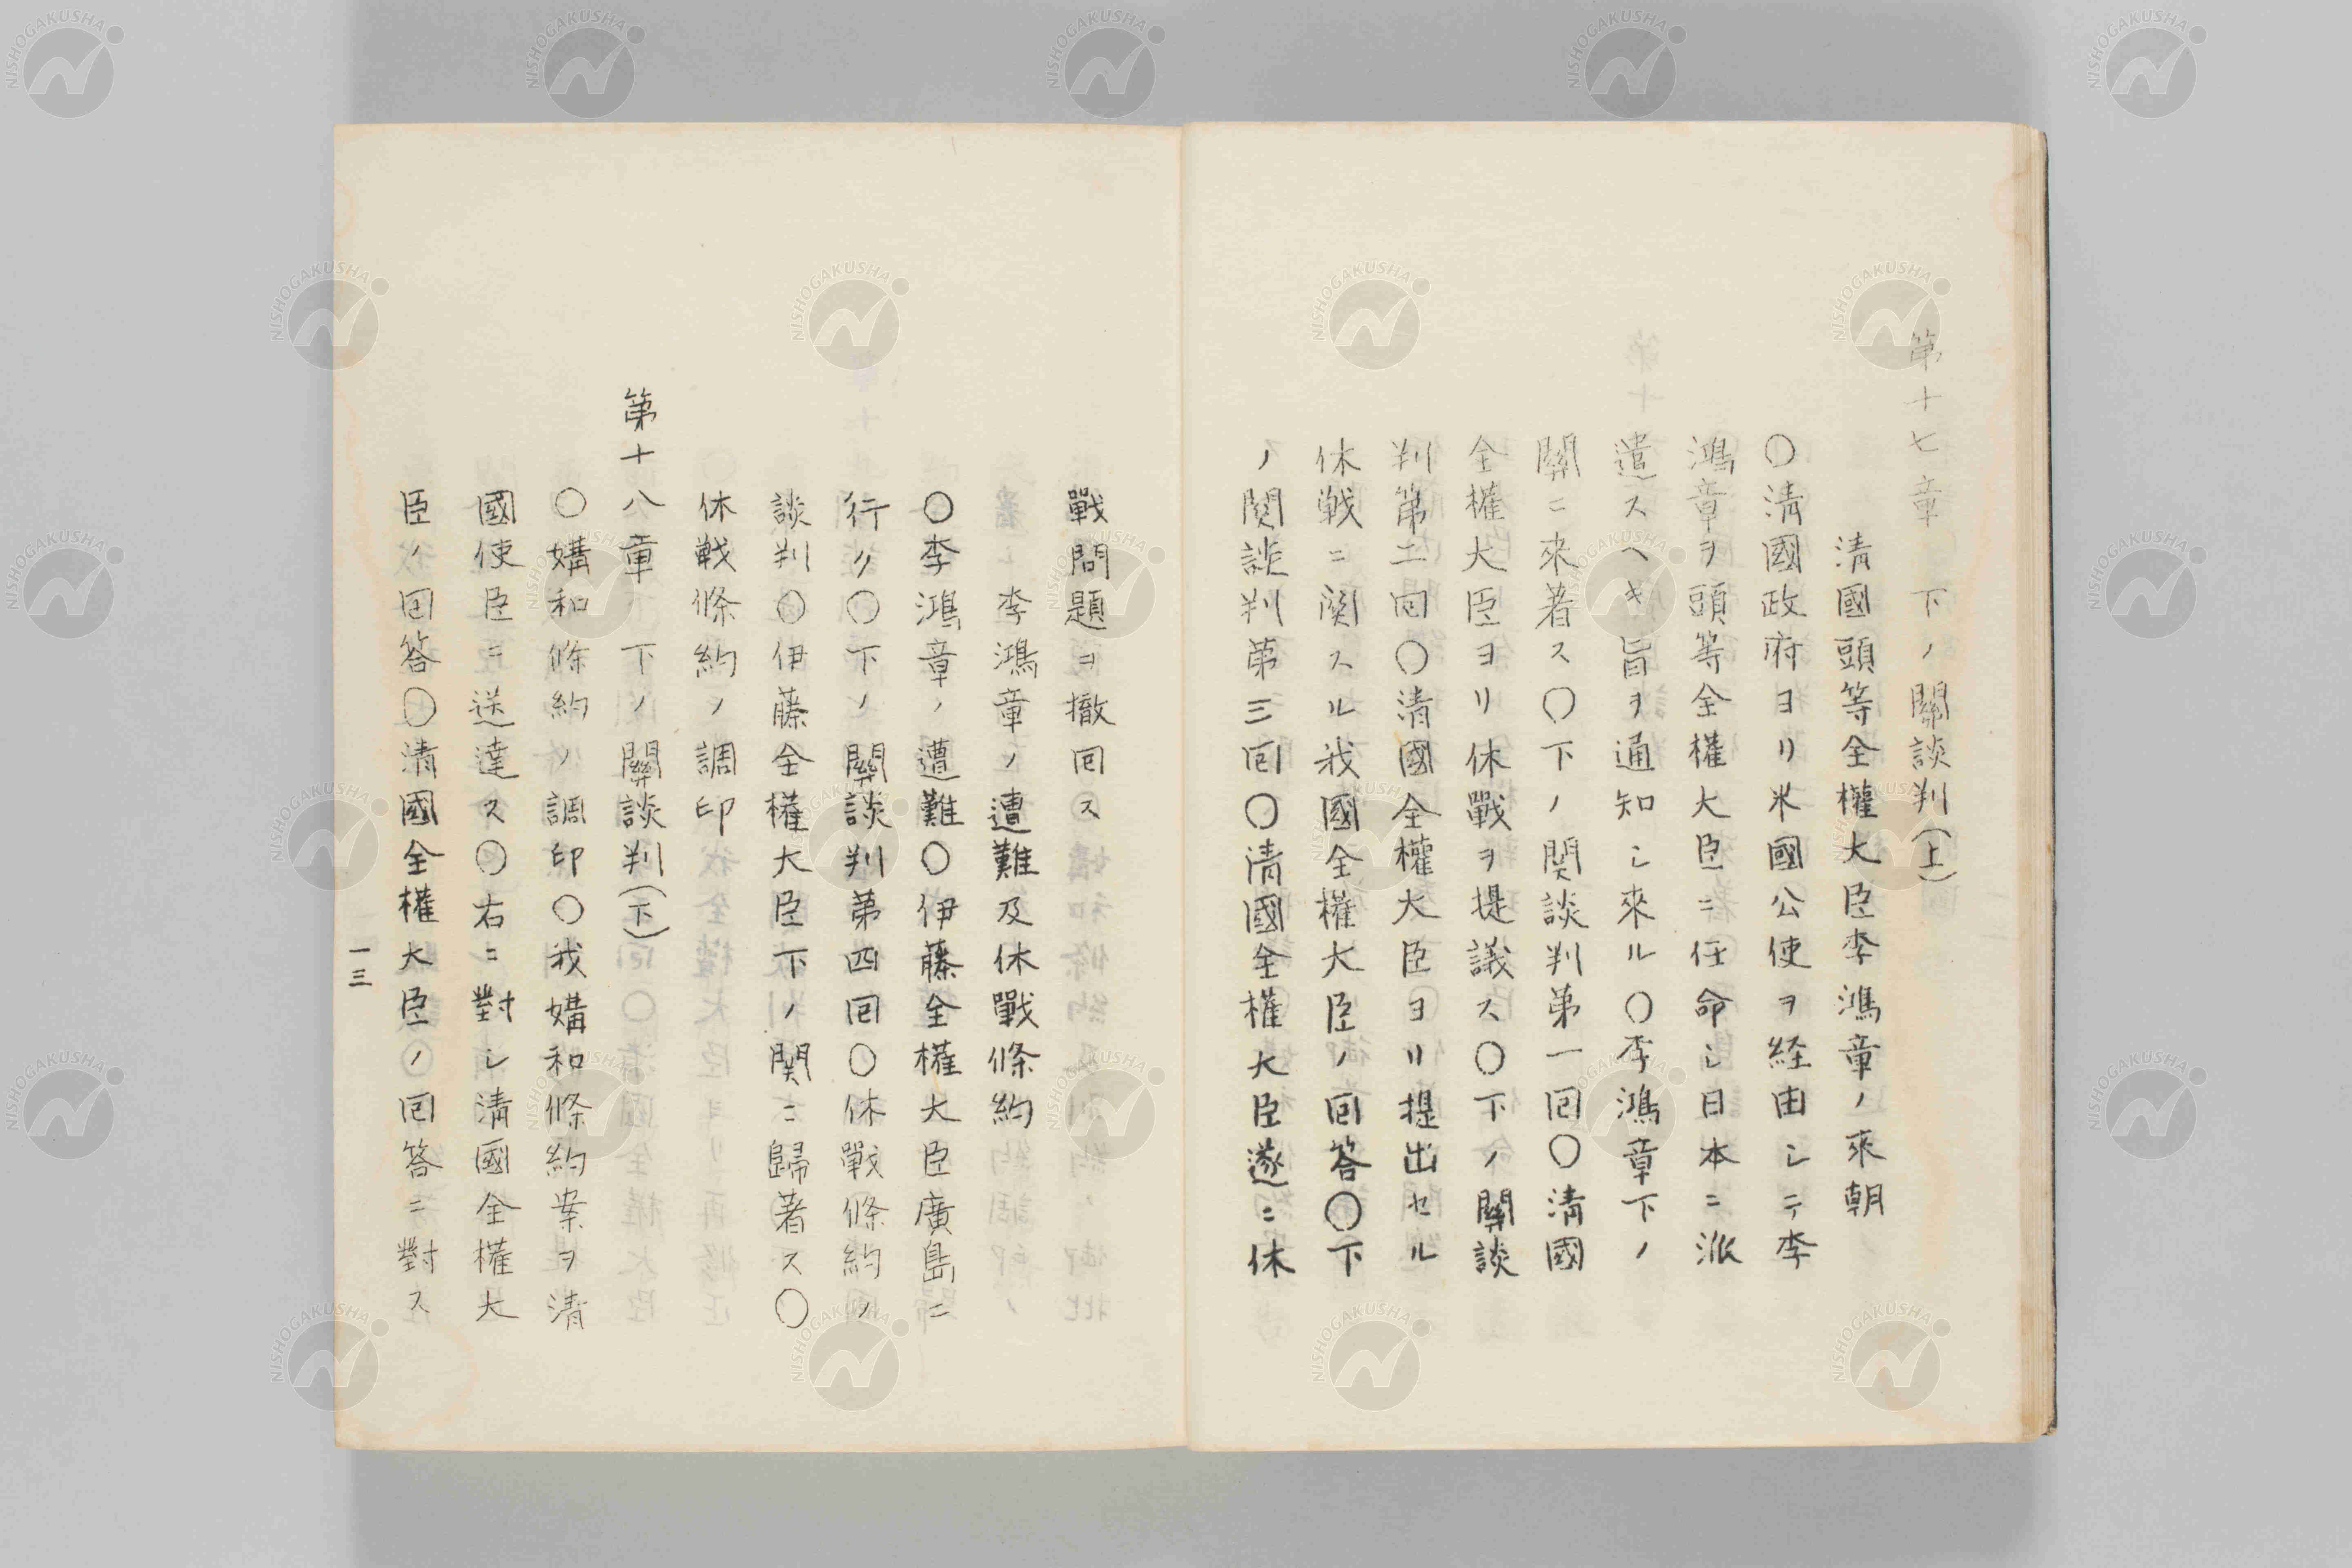 第十七章　下ノ關談判(上)
清國頭等全權大臣李鴻章ノ來朝
〇清國政府ヨリ米國公使ヲ経由シテ李
鴻章ヲ頭等全權大臣ニ任命シ日本ニ派
遣スヘキ旨ヲ通知シ來ル〇李鴻章下ノ
關ニ來着ス〇下ノ関談判第一回〇淸國
全權大臣ヨリ休戰ヲ提議ス〇下ノ關談
判第二回〇清國全權大臣ヨリ提出セル
休戦ニ関スル我國全權大臣ノ回答〇下
ノ関談判第三回〇清國全權大臣遂ニ休
戰問題ヲ撤回ス
李鴻章ノ遭難及休戰條約
〇李鴻章ノ遭難〇伊藤全權大臣廣島ニ
行ク〇下ノ關談判第四回〇休戰條約ノ
談判〇伊藤全權大臣下ノ関ニ歸著ス〇
休戦條約ノ調印
第十八章　下ノ關談判(下)
〇媾和條約ノ調印〇我媾和條約案ヲ清
國使臣ニ送達ス〇右ニ對シ清國全權大
臣ノ回答〇清國全權大臣ノ回答ニ對ス
一三
NISHOGAKUSHA